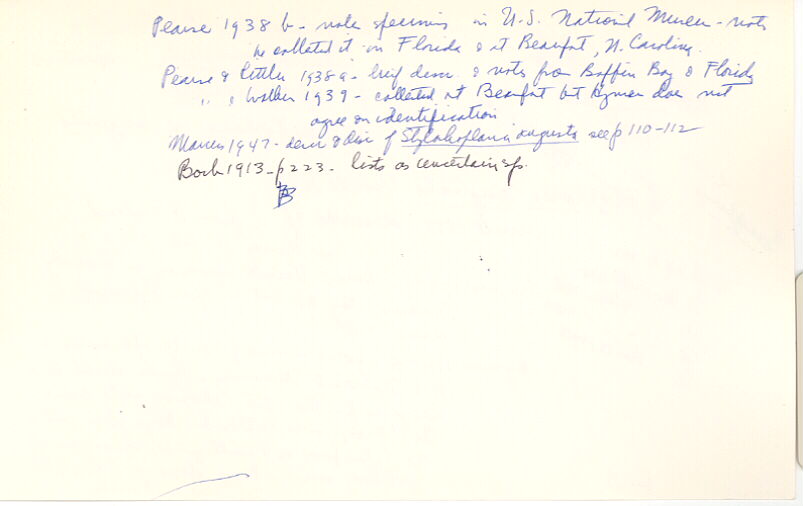 Pearse 1938 b - notes specimens in U.S. National Museum - notes
he collected it in Florida & at Beaufort, N. Carolina.
Pearse & Littler 1938 a - brief descr. & notes from Baffin Bay & Florida
" & Walker 1939 - collected at Beaufort but Hyman does not
agree on identification
Marcus 1947 - descr & disc of Stylochoplana angusta see p 110-112
Bock 1913 - p 223 - lists as uncertain sp.